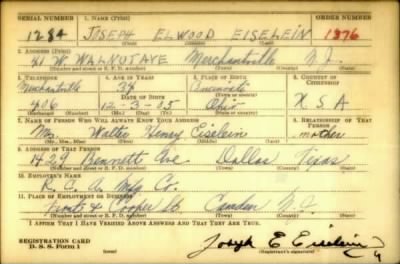 SERIAL NUMBER 1. NAME (Print) ORDER NUMBER
1284 JOSEPH ELWOOD EISELEIN 1876
(First) (Middle) (Last)
2. ADDRESS (Print)
41 W. WALNUT AVE Merchantville N.J.
(Number and street or R. F. D. number) (Town) (County) (State)
3. TELEPHONE 4. AGE IN YEARS 5. PLACE OF BIRTH 6. COUNTRY OF CITIZENSHIP
Merchantville 34 Cincinnati
DATE OF BIRTH (Town or county)
406 12-3-05 Ohio U S A
(Exchange) (Number) (Mo.) (Day) (Yr.) (State or country)
7. NAME OF PERSON WHO WILL ALWAYS KNOW YOUR ADDRESS 8. RELATIONSHIP OF THAT PERSON
Mrs. Walter Henry Eiselein mother
(Mr., Mrs., Miss) (First) (Middle) (Last)
9. ADDRESS OF THAT PERSON
1429 Bennett Ave Dallas Texas
(Number and street or R. F. D. number) (Town) (County) (State)
10. EMPLOYER'S NAME
R. C. A. Mfg Co.
11. PLACE OF EMPLOYMENT OR BUSINESS
Front & Cooper St. Camden N.J.
(Number and street or R. F. D. number) (Town) (County) (State)
I AFFIRM THAT I HAVE VERIFIED ABOVE ANSWERS AND THAT THEY ARE TRUE.
REGISTRATION CARD
D. S. S. Form 1
Joseph E Eiselein
(Registrant's signature)